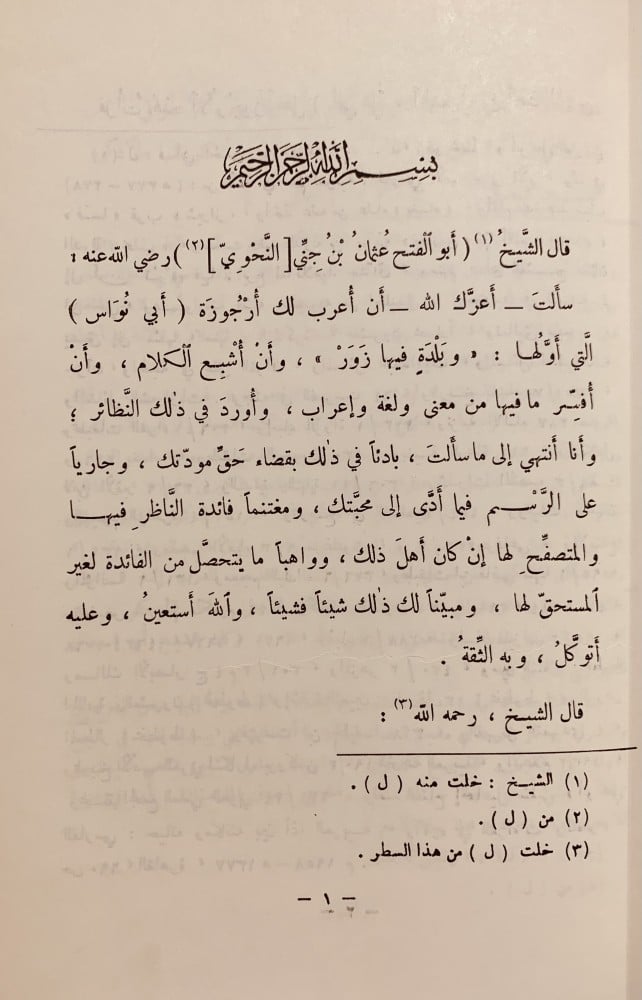 بسم الله الرحمن الرحيم
قال الشَّيخُ (١) ( أبو الفتح عُثمانُ بْنُ جِنِّي [ النَّحْويّ ] (٢) ) رضي الله عنه :
سألتَ — أعزَّك الله — أن أعرب لك أُرْجُوزَة ( أبي نُوَاس )
الَّتي أوَّلُها : « وبَلْدَةٍ فيها زَوَرْ » ، وأنْ أُشْبِع الكلام ، وأنْ
أُفسِّر ما فيها من معنى ولغة وإعراب ، وأُوردَ في ذٰلك النَّظائر ؛
وأنا أنتهي إلى ما سألتَ ، بادئاً في ذٰلك بقضاء حَقِّ مودّتك ، وجارياً
على الرَّسْم فيما أدَّى إلى محبَّتك ، ومغتنماً فائدة النَّاظرِ فيها
والمتصفِّحِ لها إنْ كان أهلَ ذلك ، وواهباً ما يتحصَّل من الفائدة لغير
المستحقّ لها ، ومبيّناً لك ذٰلك شيئاً فشيئاً ، واللهَ أستعينُ ، وعليه
أتوكَّلُ ، وبه الثِّقةُ .
قال الشيخ ، رحمه الله (٣) :
(١) الشيخ : خلت منه ( ل ) .
(٢) من ( ل ) .
(٣) خلت ( ل ) من هذا السطر .
– ١ –